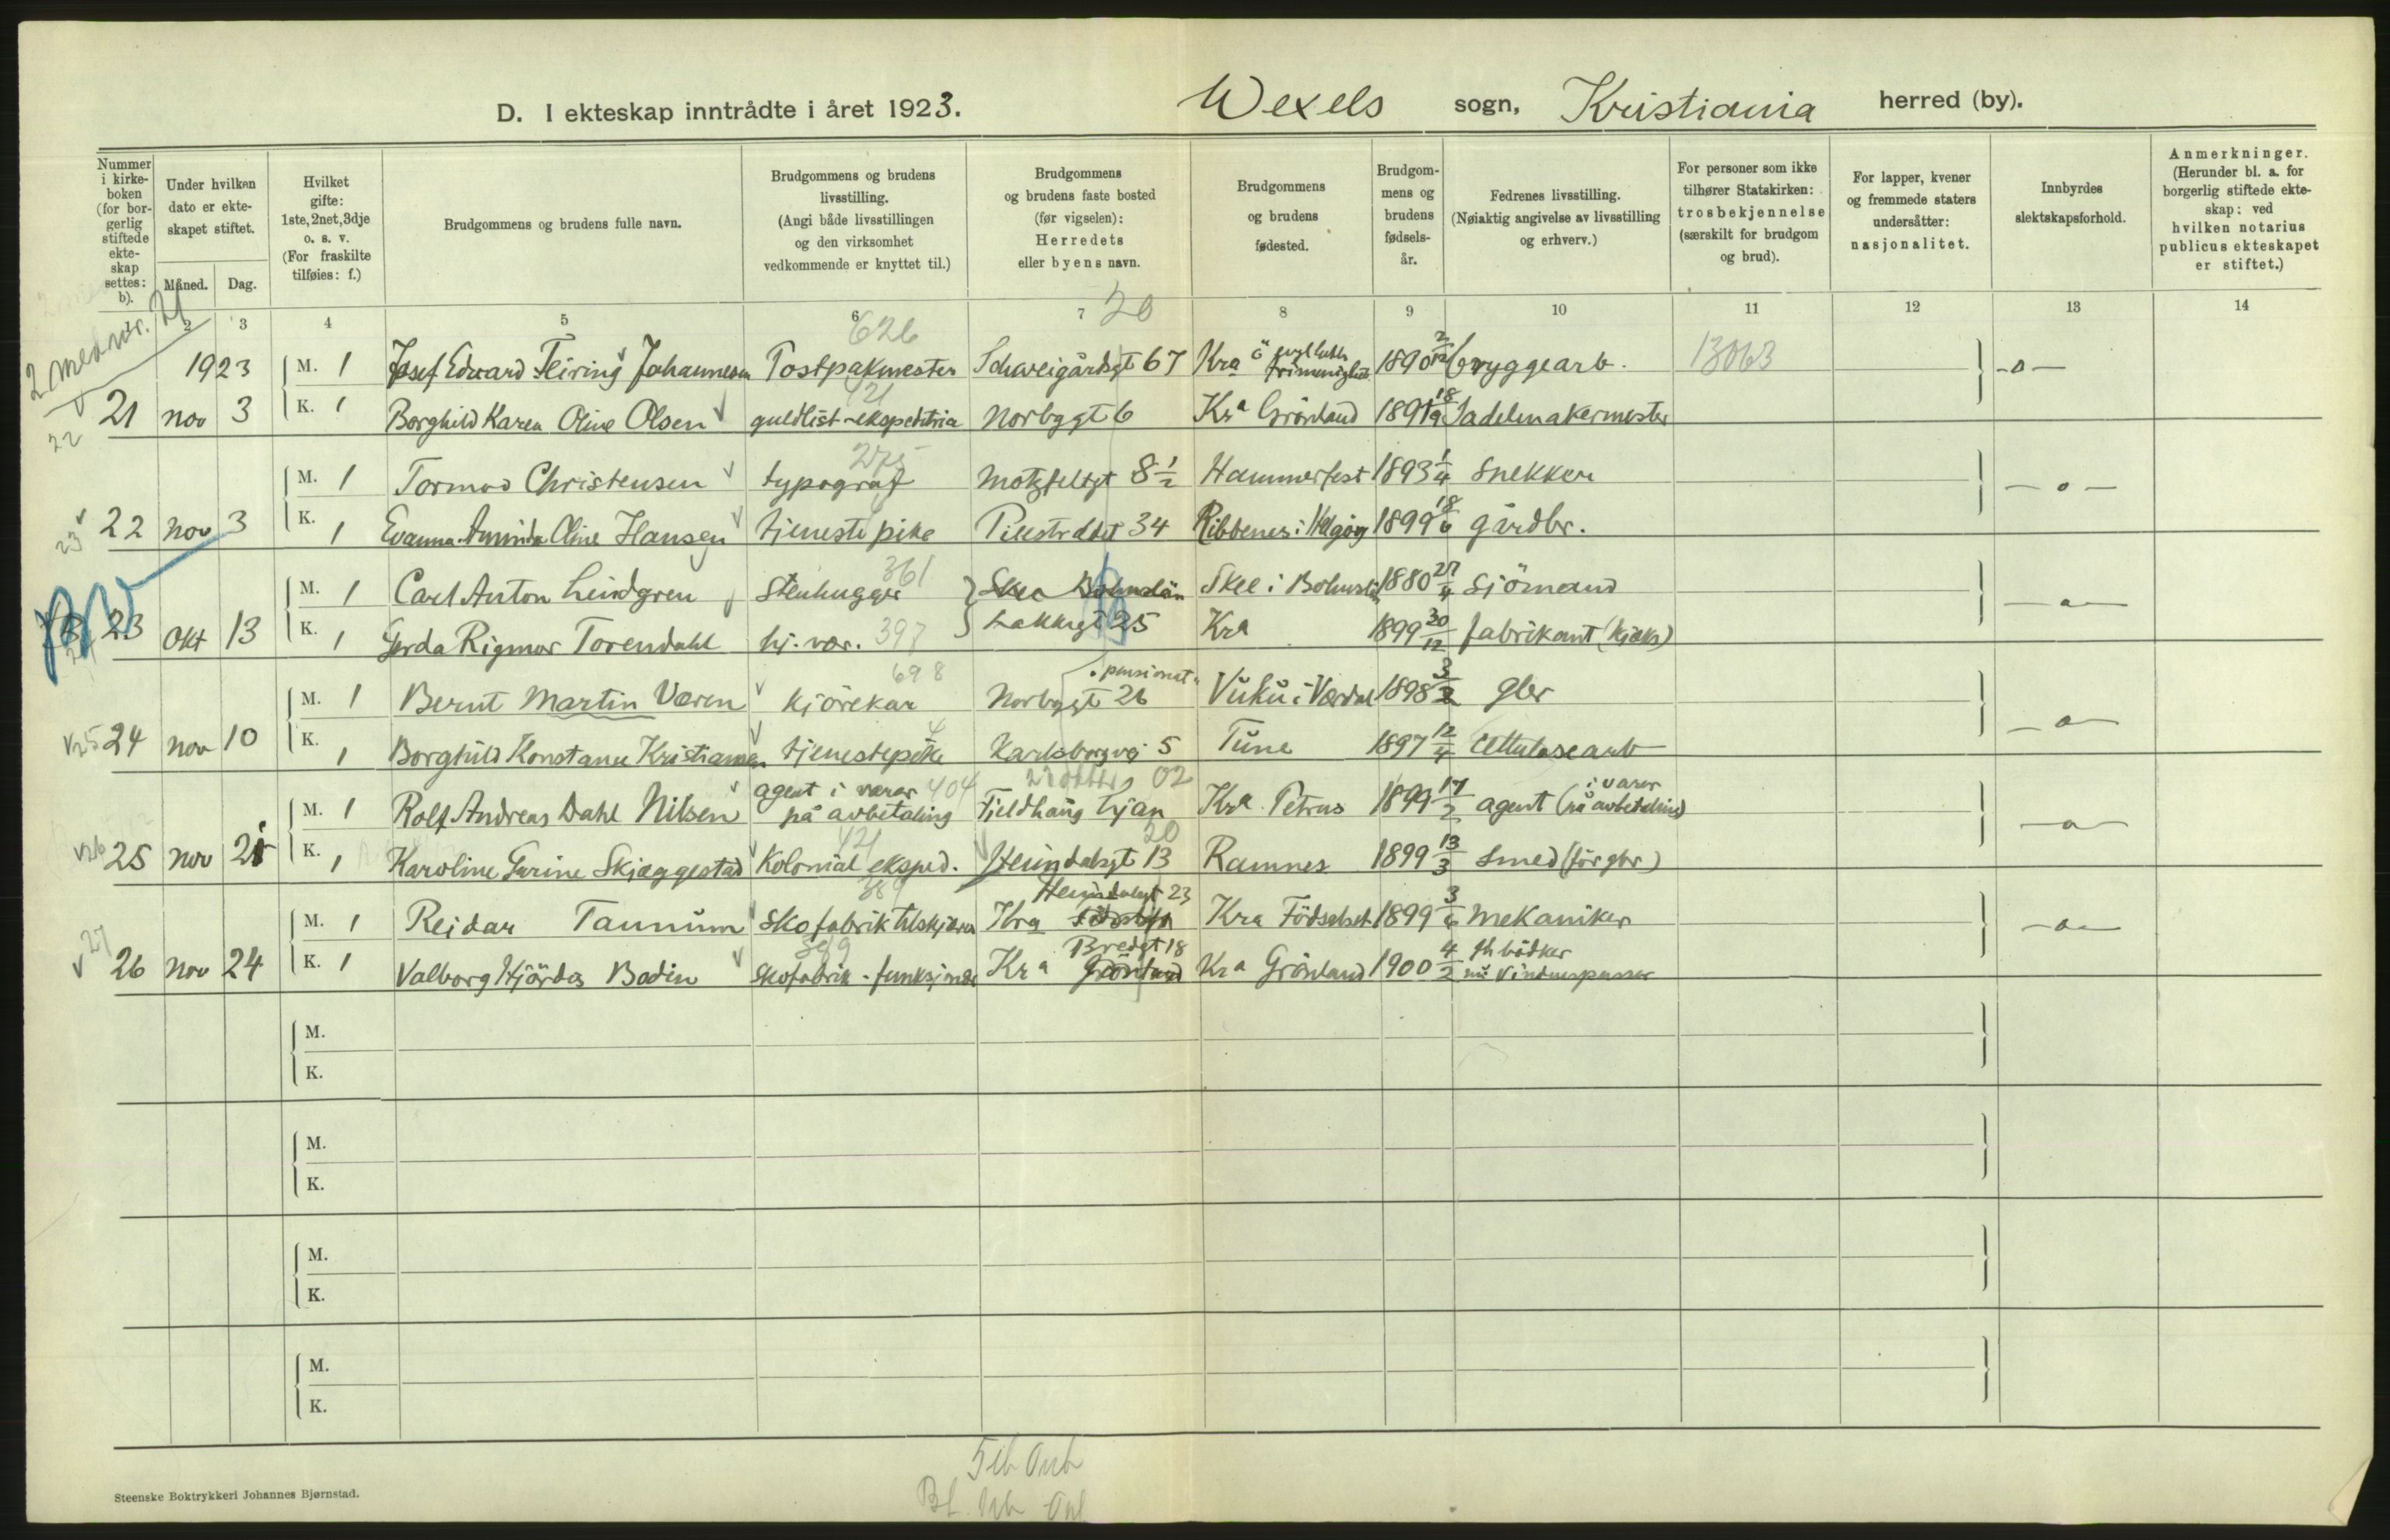 D. I ekteskap inntrådte i året 1923. Wexels sogn, Kristiania herred (by).
Nummer i kirke-boken (for bor-gerlig stiftede ekte-skap settes: b).
Under hvilken dato er ekte-skapet stiftet.
Måned. Dag.
Hvilket gifte: 1ste, 2net, 3dje o. s. v. (For fraskilte tilføies: f.)
Brudgommens og brudens fulle navn.
Brudgommens og brudens livsstilling. (Angi både livsstillingen og den virksomhet vedkommende er knyttet til.)
Brudgommens og brudens faste bosted (før vigselen): Herredets eller byens navn.
Brudgommens og brudens fødested.
Brudgom-mens og brudens fødsels-år.
Fedrenes livsstilling. (Nøiaktig angivelse av livsstilling og erhverv.)
For personer som ikke tilhører Statskirken: trosbekjennelse (særskilt for brudgom og brud).
For lapper, kvener og fremmede staters undersåtter: nasjonalitet.
Innbyrdes slektskapsforhold.
Anmerkninger. (Herunder bl. a. for borgerlig stiftede ekte-skap: ved hvilken notarius publicus ekteskapet er stiftet.)
2 3 4 5 6 7 8 9 10 11 12 13 14
2 med nr. 21
626 20
1923 M. 1 Josef Edvard Feiring Johannesen Postpakmester Schweigårdsgt 67 Kra 1890 2/12 bryggearb. 13063 -o-
421
22 21 nov 3 K. 1 Borghild Karen Oline Olsen guldlist-ekspeditrice Norbygt 6 Kra Grönland 1891 18/9 Sadelmakermester
275
M. 1 Tormod Christensen typograf Motzfeldtgt 8 1/2 Hammerfest 1893 1/4 Snekker -o-
23 22 nov 3 K. 1 Evanna Aminda Oline Hansen tjenestepike Pilestrædet 34 Ribbenes i Helgöy 1899 18/6 gårdbr.
361
M. 1 Carl Anton Lindgren Stenhugger Skee Bohuslän Skee i Bohuslän 1880 27/4 Sjömand -o-
23 Okt 13 K. 1 Gerda Rigmor Torendahl hj. vær. 397 Lakkegt 25 Kra 1899 30/12 fabrikant (kjæks)
698 pensionat
M. 1 Bernt Martin Væren kjörekar Norbygt 26 Vuku i Værdal 1898 3/2 gbr -o-
4
25 24 nov 10 K. 1 Borghild Konstance Kristiansen tjenestepike Karlsborgvei 5 Tune 1897 12/4 Cellulosearb
M. 1 Rolf Andreas Dahl Nilsen agent i varer på avbetaling 404 Fjeldhaug Ljan 02 Kra Petrus 1899 17/2 agent (i varer på avbetaling) -o-
421 20
26 25 nov 21 K. 1 Karoline Gurine Skjæggestad Kolonial eksped. Heimdalsgt 13 Ramnes 1899 13/3 Smed (för gbr)
389 Heimdalsgt 23
M. 1 Reidar Taunum Skofabrik tilskjærer Kra Kra Födselsst 1899 3/6 Mekaniker -o-
389 Bredgt 18
27 26 nov 24 K. 1 Valborg Hjördis Bodin Skofabrik-funksjonær Kra Grönland Kra Grönland 1900 4/2 fh bödker nu Vinduspusser
M.
K.
M.
K.
M.
K.
M.
K.
Steenske Boktrykkeri Johannes Bjørnstad.